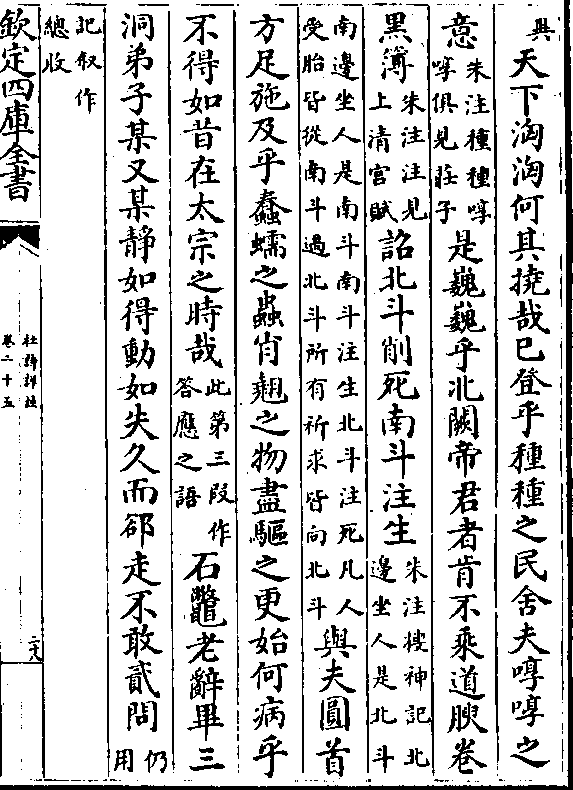 與天下洶洶何其撓哉已登乎種種之民舍夫啍啍之
意朱注種種啍啍俱見莊子是巍巍乎北闕帝君者肯不乘道腴卷
黑簿朱注注見上清宮賦詔北斗削死南斗注生朱注搜神記北邊坐人是北斗
南邊坐人是南斗南斗注生北斗注死凡人受胎皆從南斗過北斗所有祈求皆向北斗與夫圓首
方足施及乎蠢蠕之蟲肖翹之物盡驅之更始何病乎
不得如昔在太宗之時哉此第三段作答應之語石鼈老辭畢三
洞弟子某又某靜如得動如失久而郤走不敢貳問仍用
記叙作總收
欽定四庫全書
杜詩詳註
卷二十五
二十八